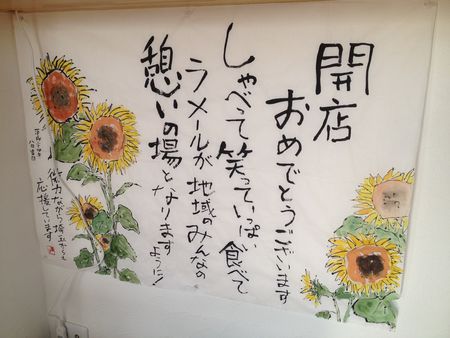 開店
おめでとうございます
しゃべって笑っていっぱい食べて
ラメールが地域のみんなの
憩いの場となります
ように!
微力ながら埼玉から
応援しています